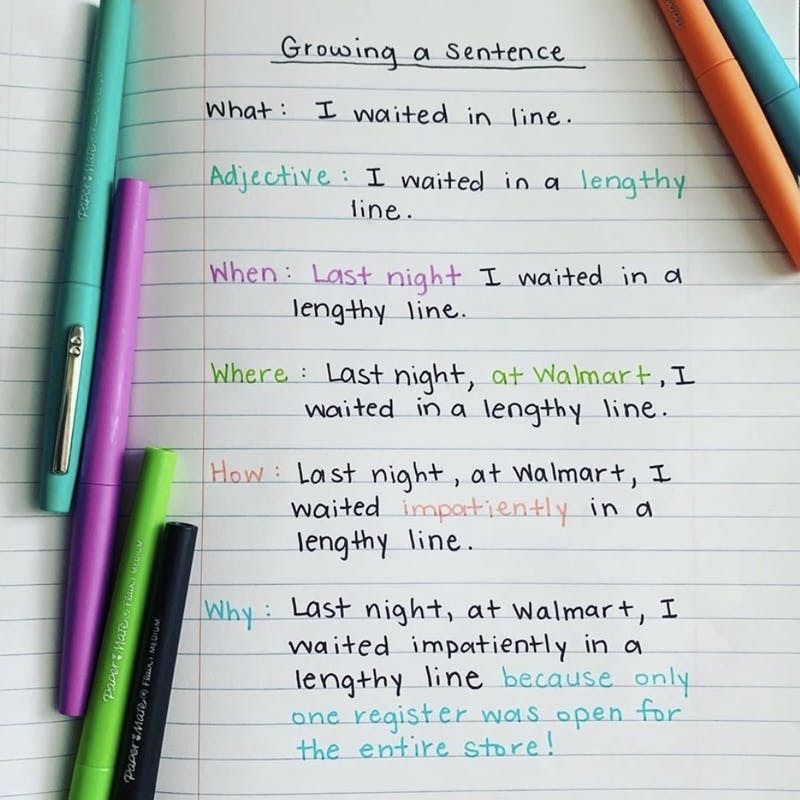 Growing a Sentence
What: I waited in line.
Adjective: I waited in a lengthy
line.
When: Last night I waited in a
lengthy line.
Where: Last night, at Walmart, I
waited in a lengthy line.
How: Last night, at Walmart, I
waited impatiently in a
lengthy line.
Why: Last night, at Walmart, I
waited impatiently in a
lengthy line because only
one register was open for
the entire store!
Paper Mate
Paper Mate Flair MEDIUM
Paper Mate Flair MEDIUM